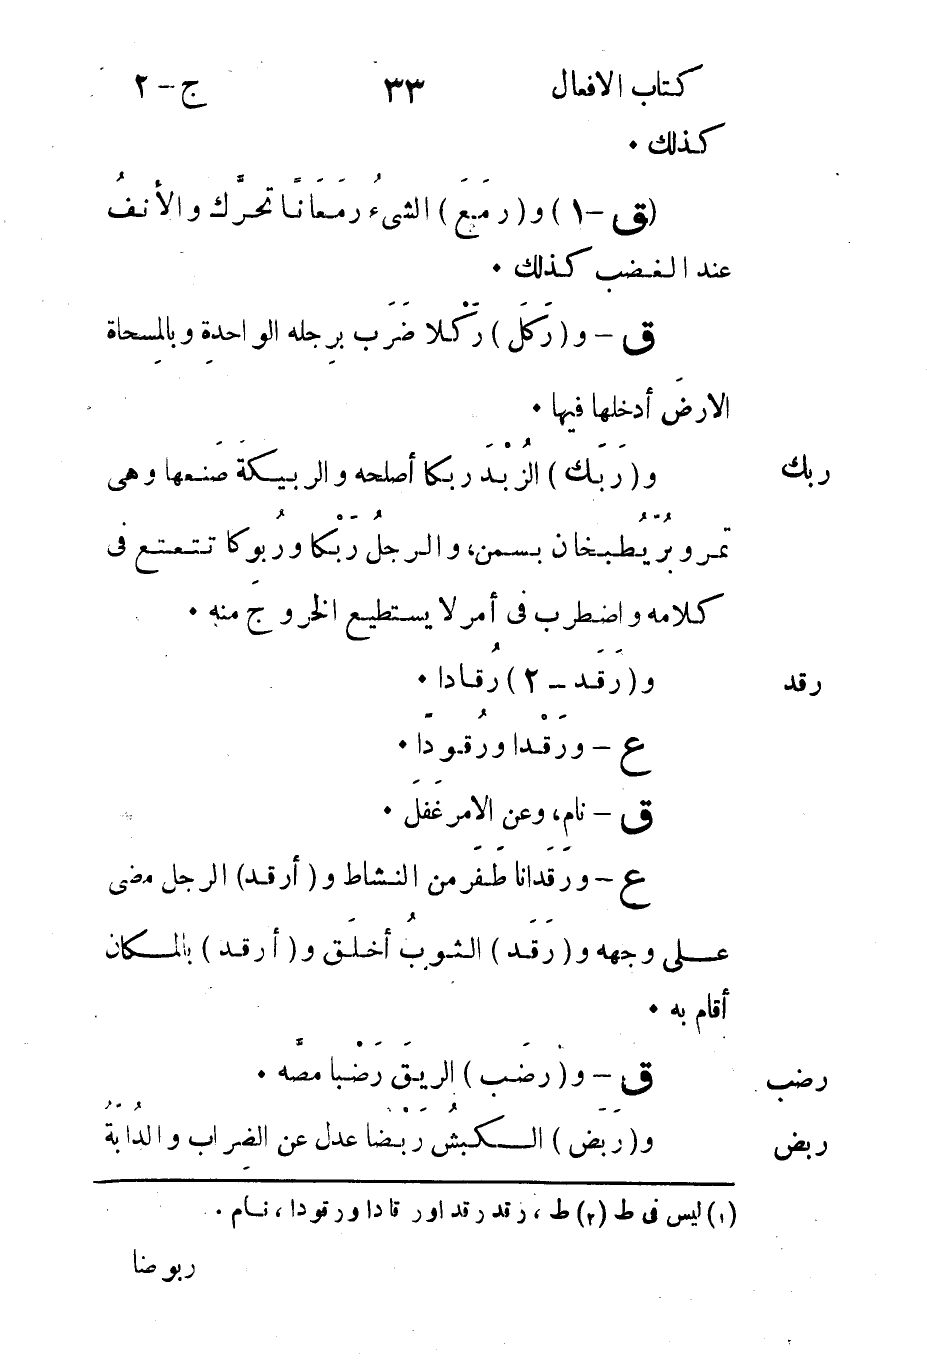 كتاب الافعال ٣٣ ج-٢
كذلك •
(ق -١) و(رمَعَ) الشىءُ رمَعَانًا تحرَّك والأنفُ
عند الغضب كذلك •
ق - و(رَكَلَ) رَكْلا ضَرَب بِرجله الواحدةِ وبالمِسحاة
الارضَ أدخلها فيها •
ربك و(رَبَك) الزُبْدَ ربكا أصلحه والربيكَةَ صَنعها وهى
تمر وبُرّ يُطبخان بسمن، والرجلُ رَبْكا ورُبوكا تتعتع فى
كلامِه واضطرب فى أمر لا يستطيع الخروجَ منه •
رقد و(رَقَد - ٢) رُقادا •
ع - ورَقْدا ورُقودًا •
ق - نام، وعن الامر غَفَلَ •
ع - ورَقَدانا طَفَر من النشاط و(أرقد) الرجل مضى
على وجهه و(رَقَد) الثوبُ أخلَق و(أرقد) بالمكان
أقام به •
رضب ق - و(رضَب) الريقَ رَضْبا مصَّه •
ربض و(رَبَض) الكبشُ رَبْضا عدل عن الضِراب والدابَّةُ
(١) ليس فى ط (٢) ط، رقد رقدا ورقادا ورقودا، نام.
ربوضا